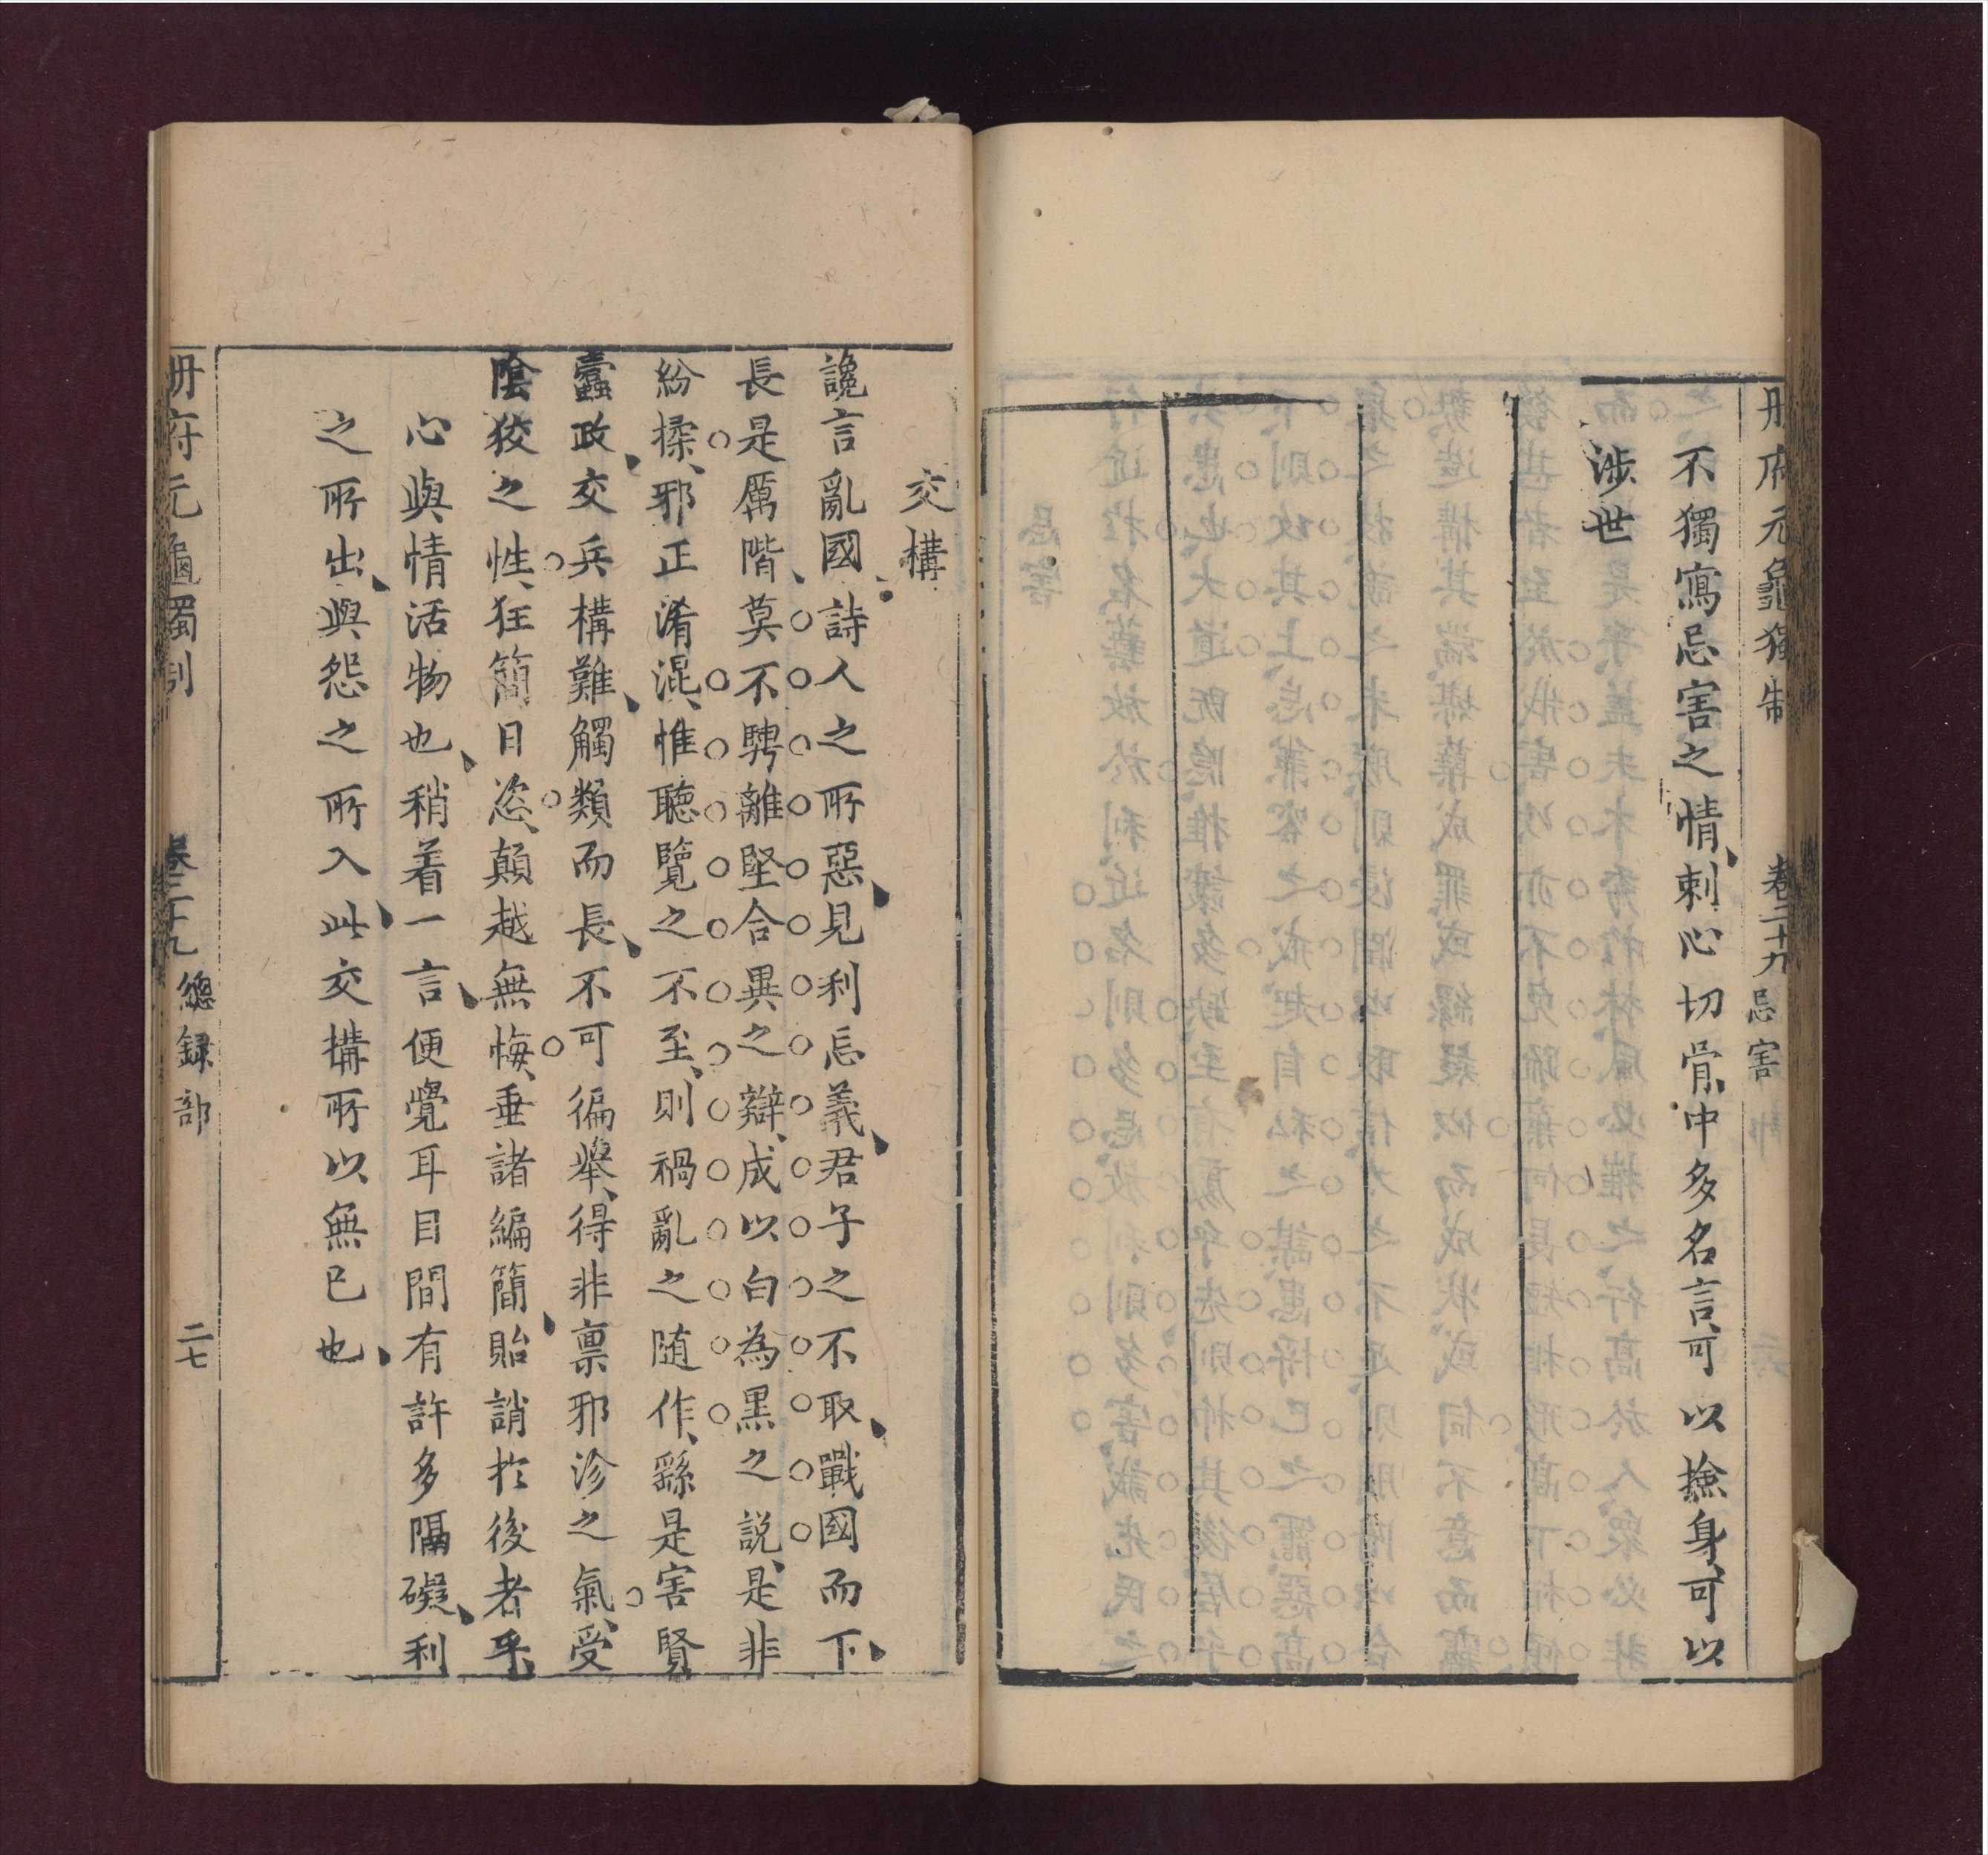 冊府元龜獨制 卷二十九 忌害
不獨寫忌害之情刺心切骨中多名言可以撿身可以
涉世
交構
讒言亂國詩人之所惡見利忘義君子之不取戰國而下
長是厲階莫不騁離堅合異之辯成以白為黑之說是非
紛揉邪正淆混惟聽覽之不至則禍亂之随作繇是害賢
蠹政交兵構難觸類而長不可徧舉得非禀邪沴之氣受
陰狡之性狂簡日恣顛越無悔垂諸編簡貽誚於後者乎
心與情活物也稍着一言便覺耳目間有許多隔礙利
之所出與怨之所入此交搆所以無已也
冊府元龜獨制 卷二十九 總録部 二七